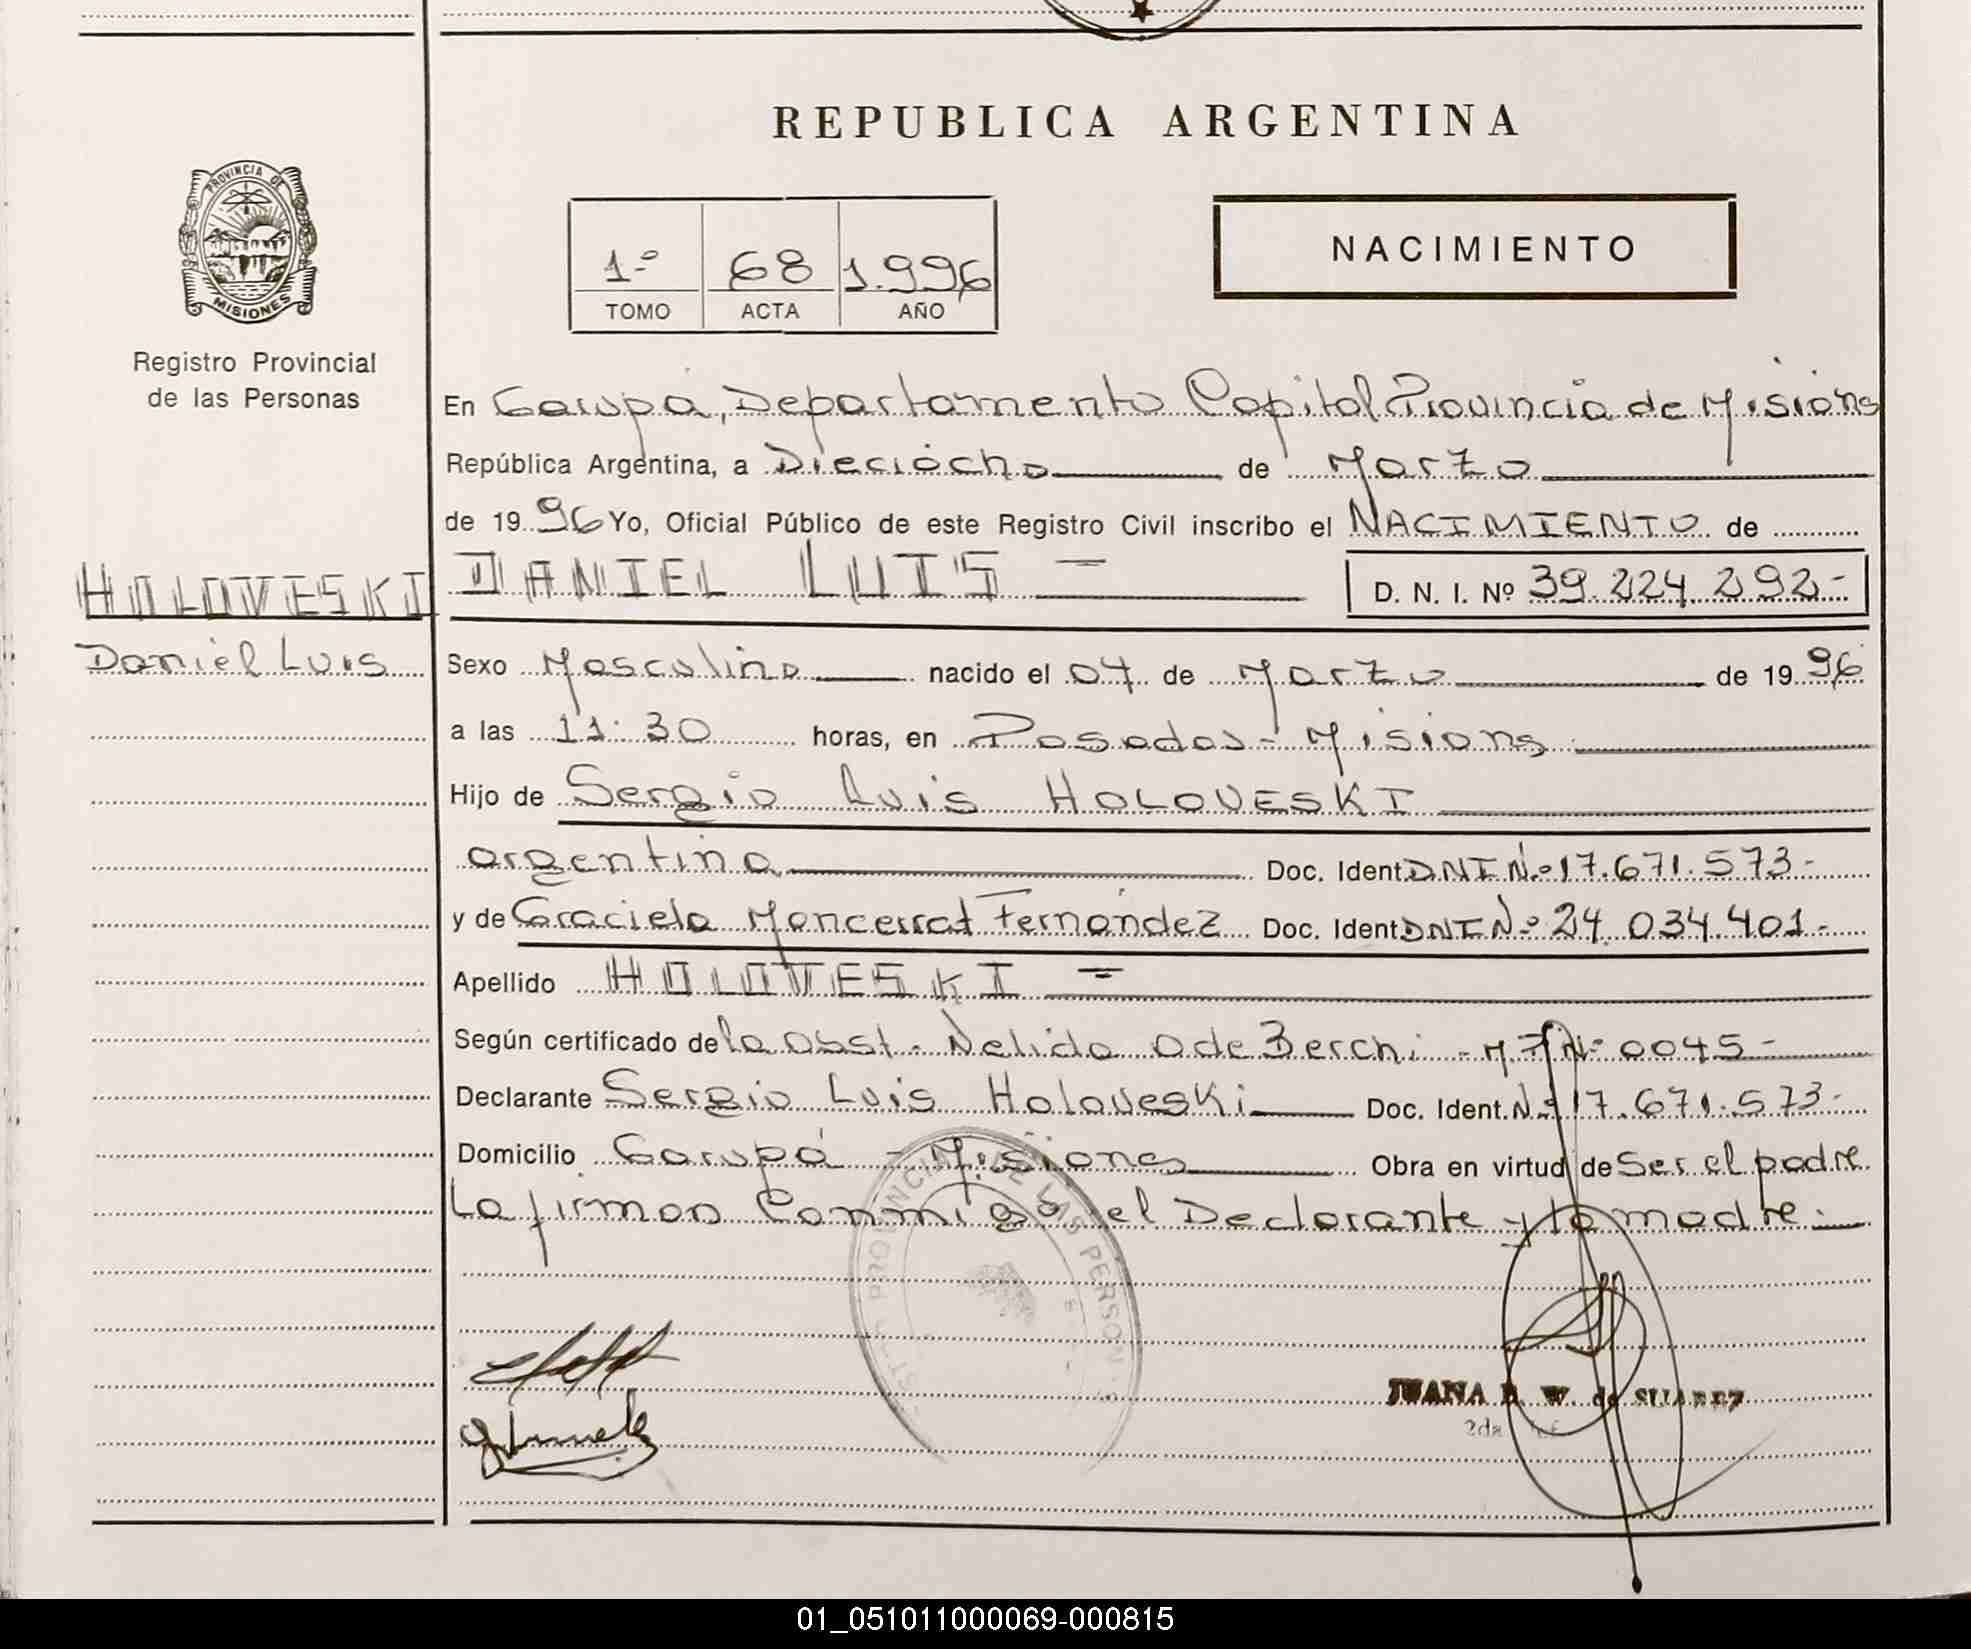 REPUBLICA ARGENTINA
PROVINCIA DE
MISIONES
Registro Provincial
de las Personas
1º 68 1.996
TOMO ACTA AÑO
NACIMIENTO
En Garupá, Departamento Capital Provincia de Misiones
República Argentina, a Dieciocho de Marzo
de 1996 Yo, Oficial Público de este Registro Civil inscribo el NACIMIENTO de
HOLOVESKI
Daniel Luis
DANIEL LUIS =
D. N. I. Nº 39.224.292-
Sexo Masculino nacido el 07 de Marzo de 1996
a las 11:30 horas, en Posadas - Misiones
Hijo de Sergio Luis HOLOVESKI
argentino Doc. Ident DNI Nº 17.671.573-
y de Graciela Moncerrat Fernández Doc. Ident DNI Nº 24.034.401-
Apellido HOLOVESKI =
Según certificado de la Obst. Nelida O de Berchi - Nº 0045-
Declarante Sergio Luis Holoveski Doc. Ident. Nº 17.671.573-
Domicilio Garupá - Misiones Obra en virtud de Ser el padre
La firman Conmigo el Declarante y la madre.
PROVINCIAL DE LAS PERSONAS
JUANA W. de SUAREZ
2da
01_051011000069-000815